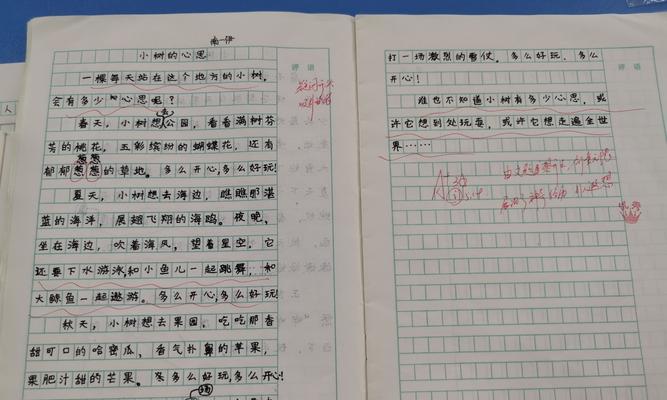 南一伊
小树的心思
一棵每天站在这个地方的小树，
会有多少心思呢？
春天，小树想去公园，看看满树芬
芳的桃花，五彩缤纷的蝴蝶花，还有
郁郁葱葱的草地。多么开心，多么好玩！
夏天，小树想去海边，瞧瞧那湛
蓝的海洋，展翅飞翔的海鸥。夜晚，
坐在海边，吹着海风，望着星空，它
还要下水游泳和小鱼儿一起跳舞，和
大鲸鱼一起遨游。多么开心，多么好玩！
秋天，小树想去果园，吃吃那香
甜可口的哈密瓜，香气扑鼻的苹果，
果肥汁甜的芒果。多么好玩，多么开心！
评语
打一场激烈的雪仗。多么好玩，多么
开心！
谁也不知道小树有多少心思，或
许它想到处玩耍，或许它想走遍全世
界……
评语